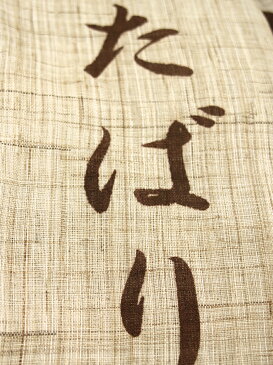 たばり